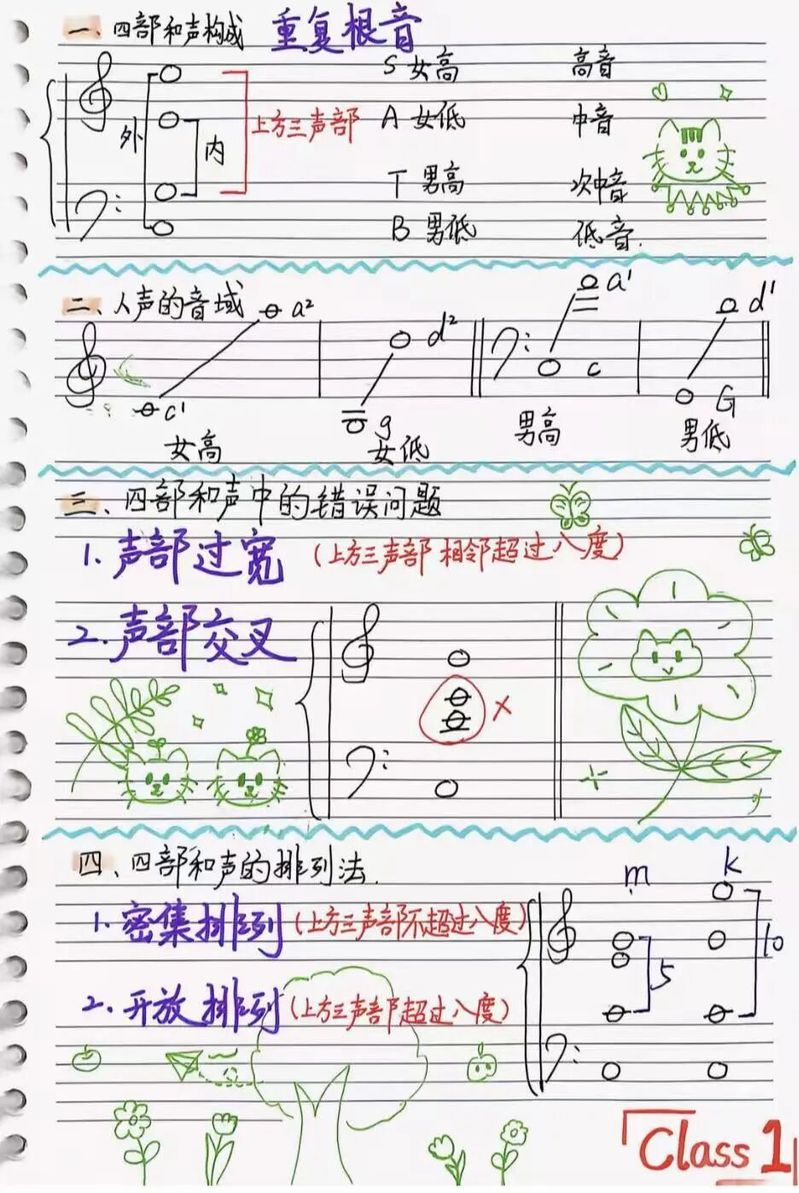 一、四部和声构成 重复根音
S 女高 高音
外 内 上方三声部 A 女低 中音
T 男高 次中音
B 男低 低音.
二、人声的音域
a² d² a¹ d¹
c¹ g c G
女高 女低 男高 男低
三、四部和声中的错误问题
1. 声部过宽 (上方三声部 相邻超过八度)
2. 声部交叉
×
四、四部和声的排列法.
m k
1. 密集排列 (上方三声部不超过八度)
5 10
2. 开放排列 (上方三声部超过八度)
Class 1